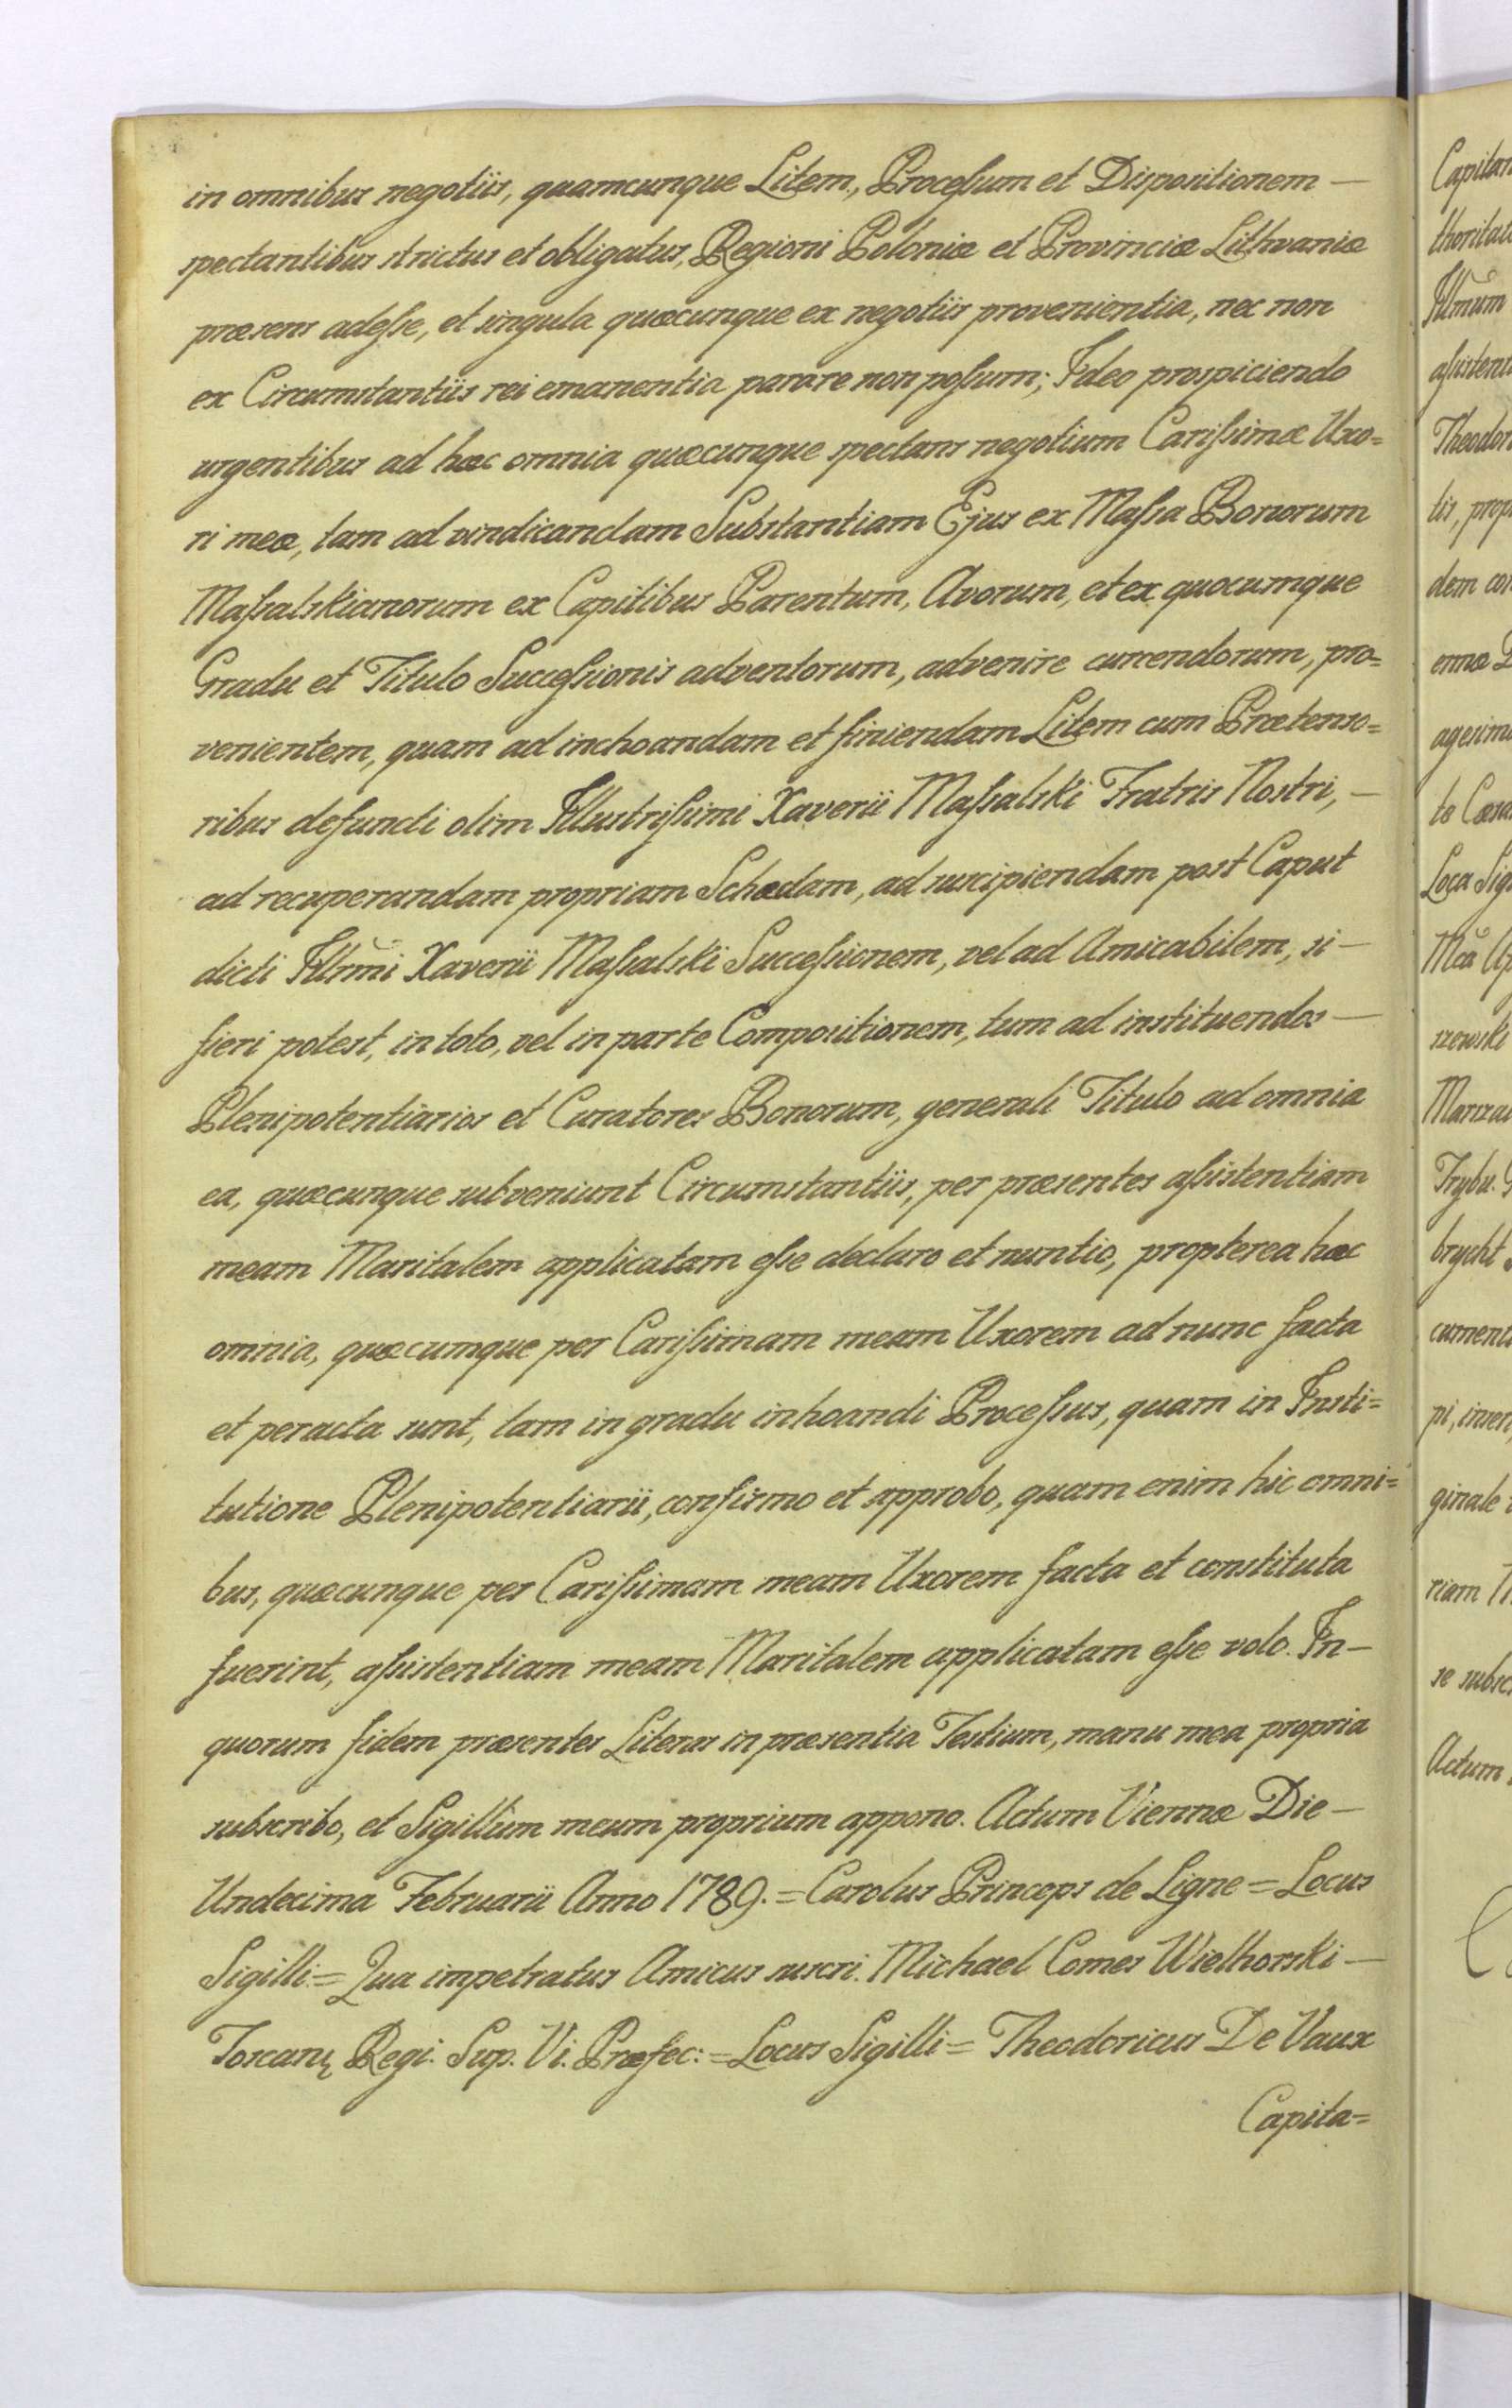 in omnibus negotiis, quamcunque Litem, Processum et Dispositionem —
spectantibus strictus et obligatus, Regioni Poloniæ et Provinciæ Lithvaniæ
præsens adesse, et singula quæcunque ex negotiis provenientia, nec non
ex Circumstantiis rei emanentia parare non possum; Ideo prospiciendo
urgentibus ad hæc omnia quæcunque spectans negotium Carissimæ Uxo=
ri meæ, tam ad vindicandam Substantiam Ejus ex Massa Bonorum
Massalskianorum ex Capitibus Parentum, Avorum, et ex quocumque
Gradu et Titulo Successionis adventorum, advenire currendorum, pro=
venientem, quam ad inchoandam et finiendam Litem cum Prætenso=
ribus defuncti olim Illustrissimi Xaverii Massalski Fratris Nostri, —
ad recuperandam propriam Schædam, ad suscipiendam post Caput
dicti Illrmi Xaverii Massalski Successionem, vel ad Amicabilem, si —
fieri potest, in toto, vel in parte Compositionem, tum ad instituendos —
Plenipotentiarios et Curatores Bonorum, generali Titulo ad omnia
ea, quæcunque subveniunt Circumstantiis, per præsentes assistentiam
meam Maritalem applicatam esse declaro et nuntio, propterea hæc
omnia, quæcumque per Carissimam meam Uxorem ad nunc facta
et peracta sunt, tam in gradu inhoandi Processus, quam in Insti=
tutione Plenipotentiarii, confirmo et approbo, quam enim hic omni=
bus, quæcunque per Carissimam meam Uxorem facta et constituta
fuerint, assistentiam meam Maritalem applicatam esse volo. In —
quorum fidem præsentes Literas in præsentia Testium, manu mea propria
subscribo, et Sigillum meum proprium appono. Actum Viennæ Die —
Undecima Februarii Anno 1789. = Carolus Princeps de Ligne = Locus
Sigilli = Qua impetratus Amicus suscri. Michael Comes Wielhorski —
Toscanę Regi. Sup. Vi. Præfec: = Locus Sigilli = Theodoricus De Vaux
Capita=